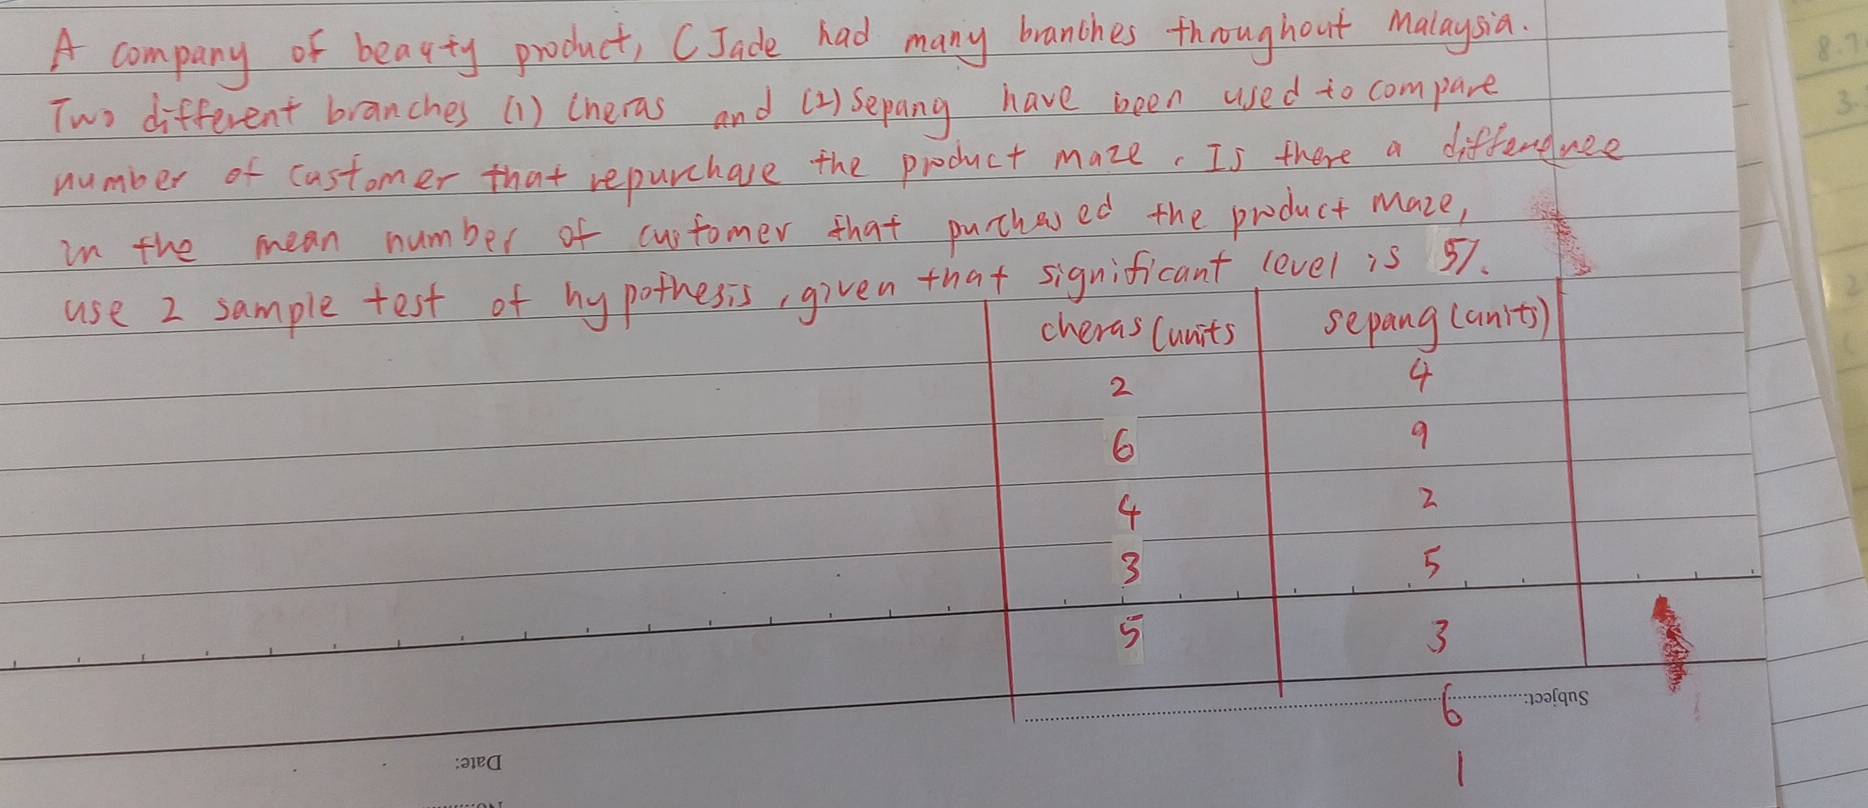 A company of beauty product, CJade had many branches throughout Malaysia.
Two different branches (1) Cheras and (2) Sepang have been used to compare
number of customer that repurchase the product maze. Is there a differendnee
in the mean number of customer that purchased the product maze,
use 2 sample test of hypothesis, given that significant level is 5%.
cheras (units sepang (units)
2 4
6 9
4 2
3 5
5 3
6
1
Subject:
Date: